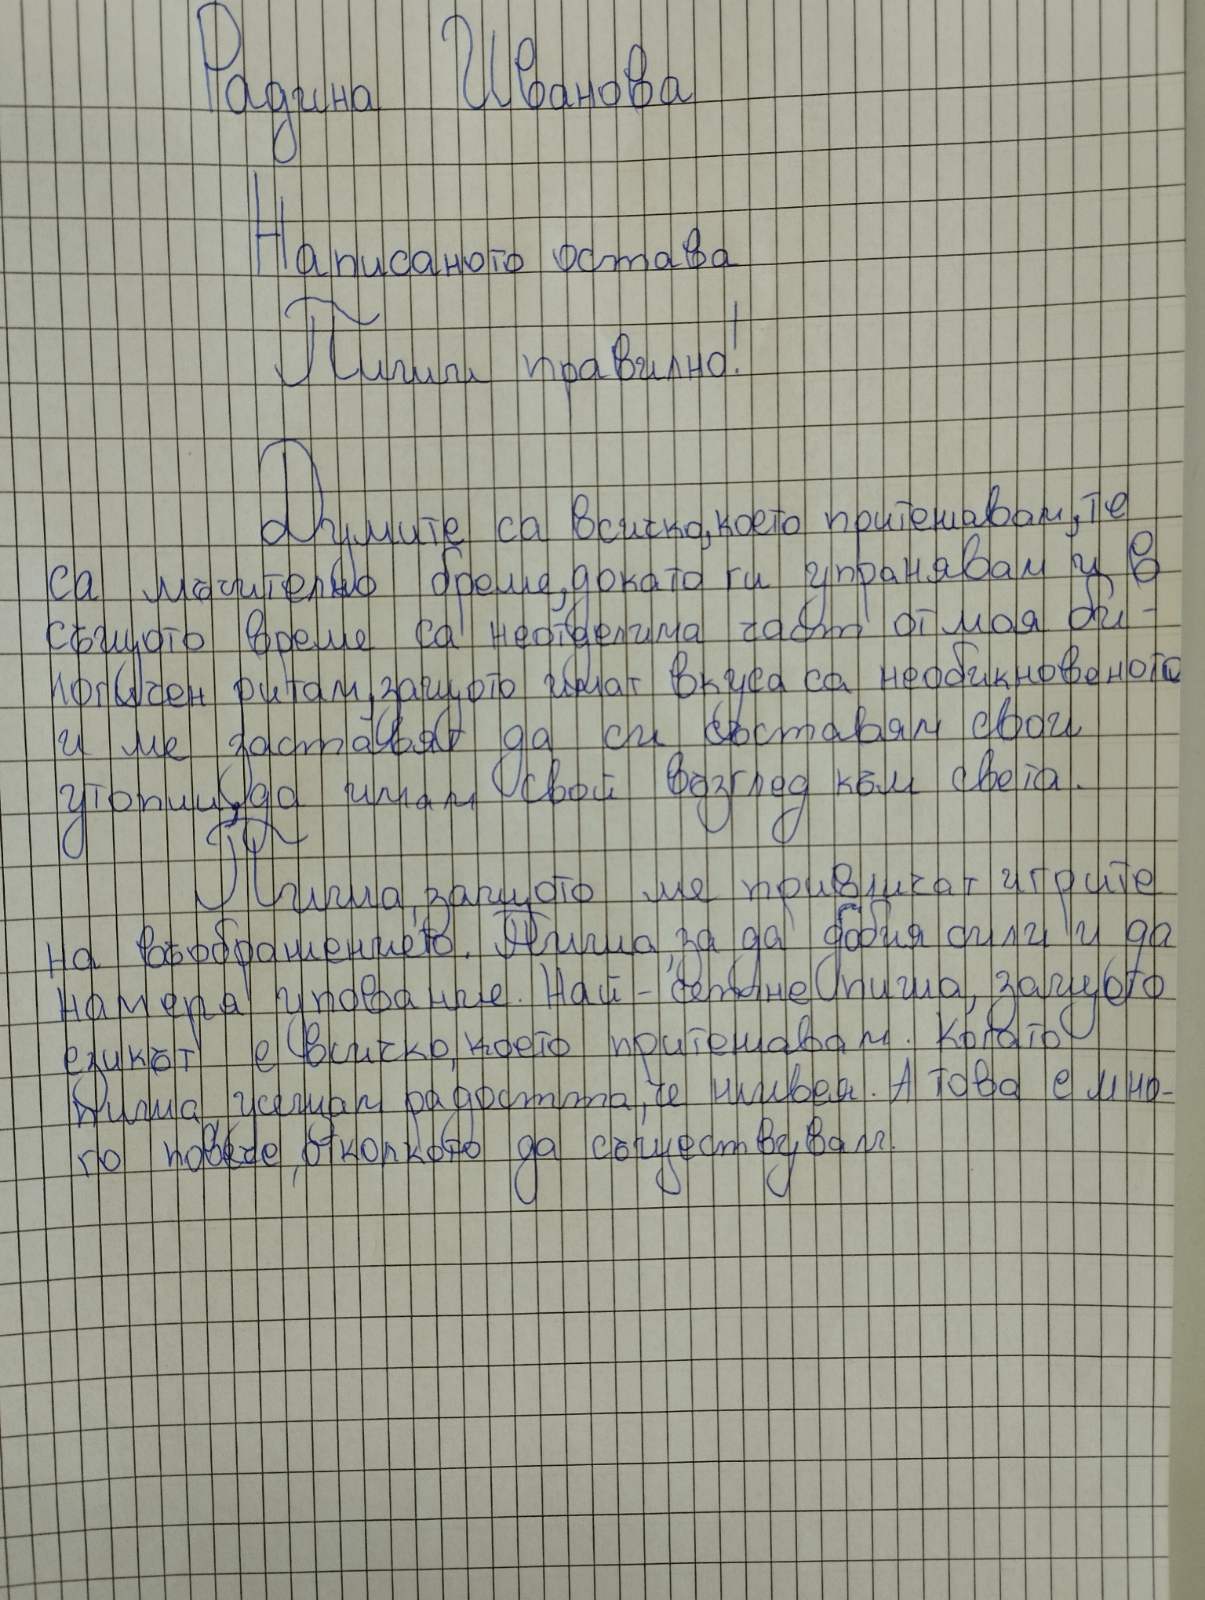 Радина Иванова
Написаното остава
Пиши правилно!
Думите са всичко, което притежавам, те
са мъчително бреме, докато ги управявам и в
същото време са неотделима част от моя би-
ологичен ритъм, защото имат вкуса са необикновеното
и ме заставят да си съставям свои
утопии, да имам свой възглед към света.
Пиша, защото ме привличат игрите
на въображението. Пиша, за да добия сили и да
намеря упование. Най-сетне пиша, защото
езикът е всичко, което притежавам. Когато
пиша усещам радостта, че живея. А това е мно-
го повече, отколкото да съществувам.